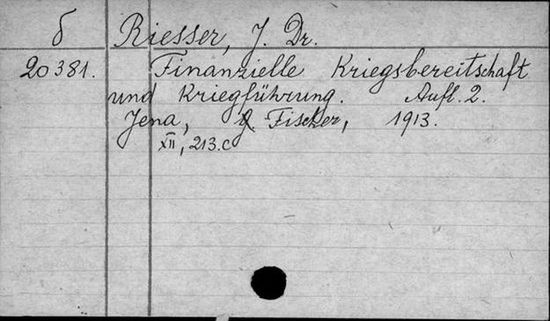 б Riesser, J. Dr.
20381. Finanzielle Kriegsbereitschaft
und Kriegführung. Aufl. 2.
Jena, G. Fischer, 1913.
XII, 213.c